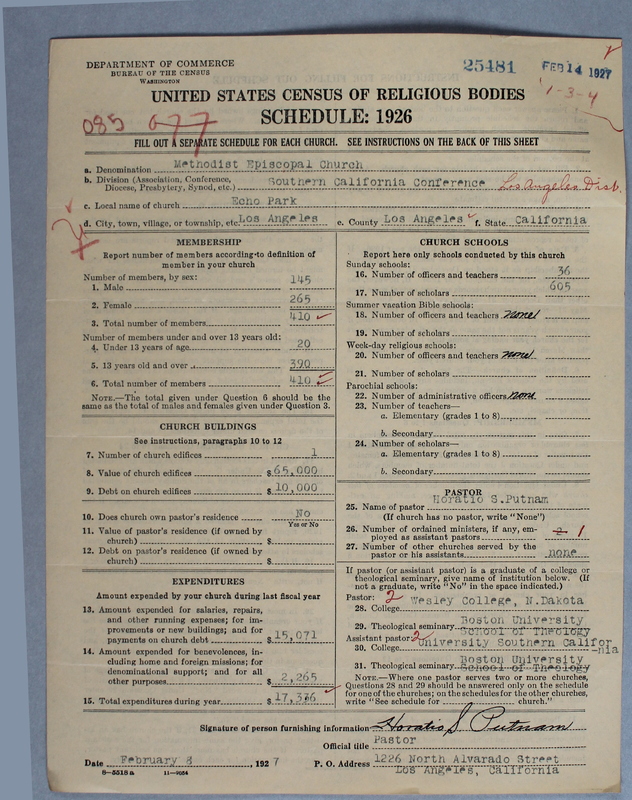 DEPARTMENT OF COMMERCE
BUREAU OF THE CENSUS
WASHINGTON
25481 FEB 14 1927
1-3-4
UNITED STATES CENSUS OF RELIGIOUS BODIES
SCHEDULE: 1926
085 077
FILL OUT A SEPARATE SCHEDULE FOR EACH CHURCH. SEE INSTRUCTIONS ON THE BACK OF THIS SHEET
a. Denomination Methodist Episcopal Church
b. Division (Association, Conference, Diocese, Presbytery, Synod, etc.) Southern California Conference Los Angeles Dist.
c. Local name of church Echo Park
d. City, town, village, or township, etc. Los Angeles e. County Los Angeles f. State California
MEMBERSHIP
Report number of members according to definition of
member in your church
Number of members, by sex:
1. Male 145
2. Female 265
3. Total number of members 410
Number of members under and over 13 years old:
4. Under 13 years of age 20
5. 13 years old and over 390
6. Total number of members 410
NOTE.—The total given under Question 6 should be
same as the total of males and females given under Question 3.
CHURCH BUILDINGS
See instructions, paragraphs 10 to 12
7. Number of church edifices 1
8. Value of church edifices $65,000
9. Debt on church edifices $10,000
10. Does church own pastor's residence No
Yes or No
11. Value of pastor's residence (if owned by
church) $
12. Debt on pastor's residence (if owned by
church) $
EXPENDITURES
Amount expended by your church during last fiscal year
13. Amount expended for salaries, repairs,
and other running expenses; for im-
provements or new buildings; and for
payments on church debt $15,071
14. Amount expended for benevolences, in-
cluding home and foreign missions; for
denominational support; and for all
other purposes 2,265
15. Total expenditures during year $17,336
CHURCH SCHOOLS
Report here only schools conducted by this church
Sunday schools:
16. Number of officers and teachers 36
17. Number of scholars 605
Summer vacation Bible schools:
18. Number of officers and teachers none
19. Number of scholars
Week-day religious schools:
20. Number of officers and teachers none
21. Number of scholars
Parochial schools:
22. Number of administrative officers none
23. Number of teachers—
a. Elementary (grades 1 to 8)
b. Secondary
24. Number of scholars—
a. Elementary (grades 1 to 8)
b. Secondary
PASTOR
25. Name of pastor Horatio S.Putnam
(If church has no pastor, write "None")
26. Number of ordained ministers, if any, em-
ployed as assistant pastors 2 1
27. Number of other churches served by the
pastor or his assistants none
If pastor (or assistant pastor) is a graduate of a college or
theological seminary, give name of institution below. (If
not a graduate, write "No" in the space indicated.)
Pastor: 2
28. College Wesley College, N.Dakota
29. Theological seminary Boston University
School of Theology
Assistant pastor: 2
30. College University Southern Califor
-nia
31. Theological seminary Boston University
School of Theology
NOTE.—Where one pastor serves two or more churches,
Questions 28 and 29 should be answered only on the schedule
for one of the churches; on the schedules for the other churches,
write "See schedule for church."
Signature of person furnishing information Horatio S. Putnam
Official title Pastor
Date February 8, 1927 P. O. Address 1226 North Alvarado Street
Los Angeles, California
8—5518 a 11—9054